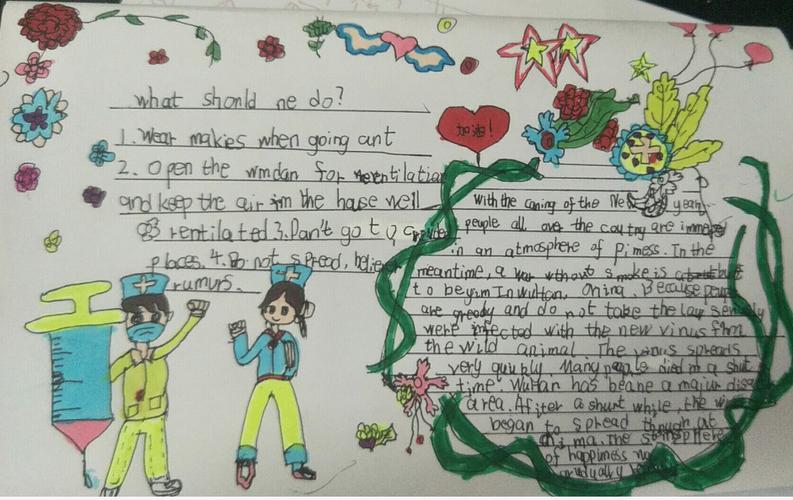 what should ne do?
1. Wear makies when going ant
2. Open the wmdan for ventilation
and keep the air im the hause well
rentilated 3. Pan't go to
places. 4. Do not spread, belie
rumurs.
加油!
with the caning of the Ne year
people all over the coutry are
in an atmosphere of Pimess. In the
meantime, a war without smoke is
to begum In wuhan, China. Because
are greedy and do not take the law
were infected with the new virus frm
the wild animal. The virus spreads
very quickly. Many people died in a shut
time. Wuhan has beane a majur
area. Afiter a shurt while, the
began to spread thraugh at
China. The
of happimess